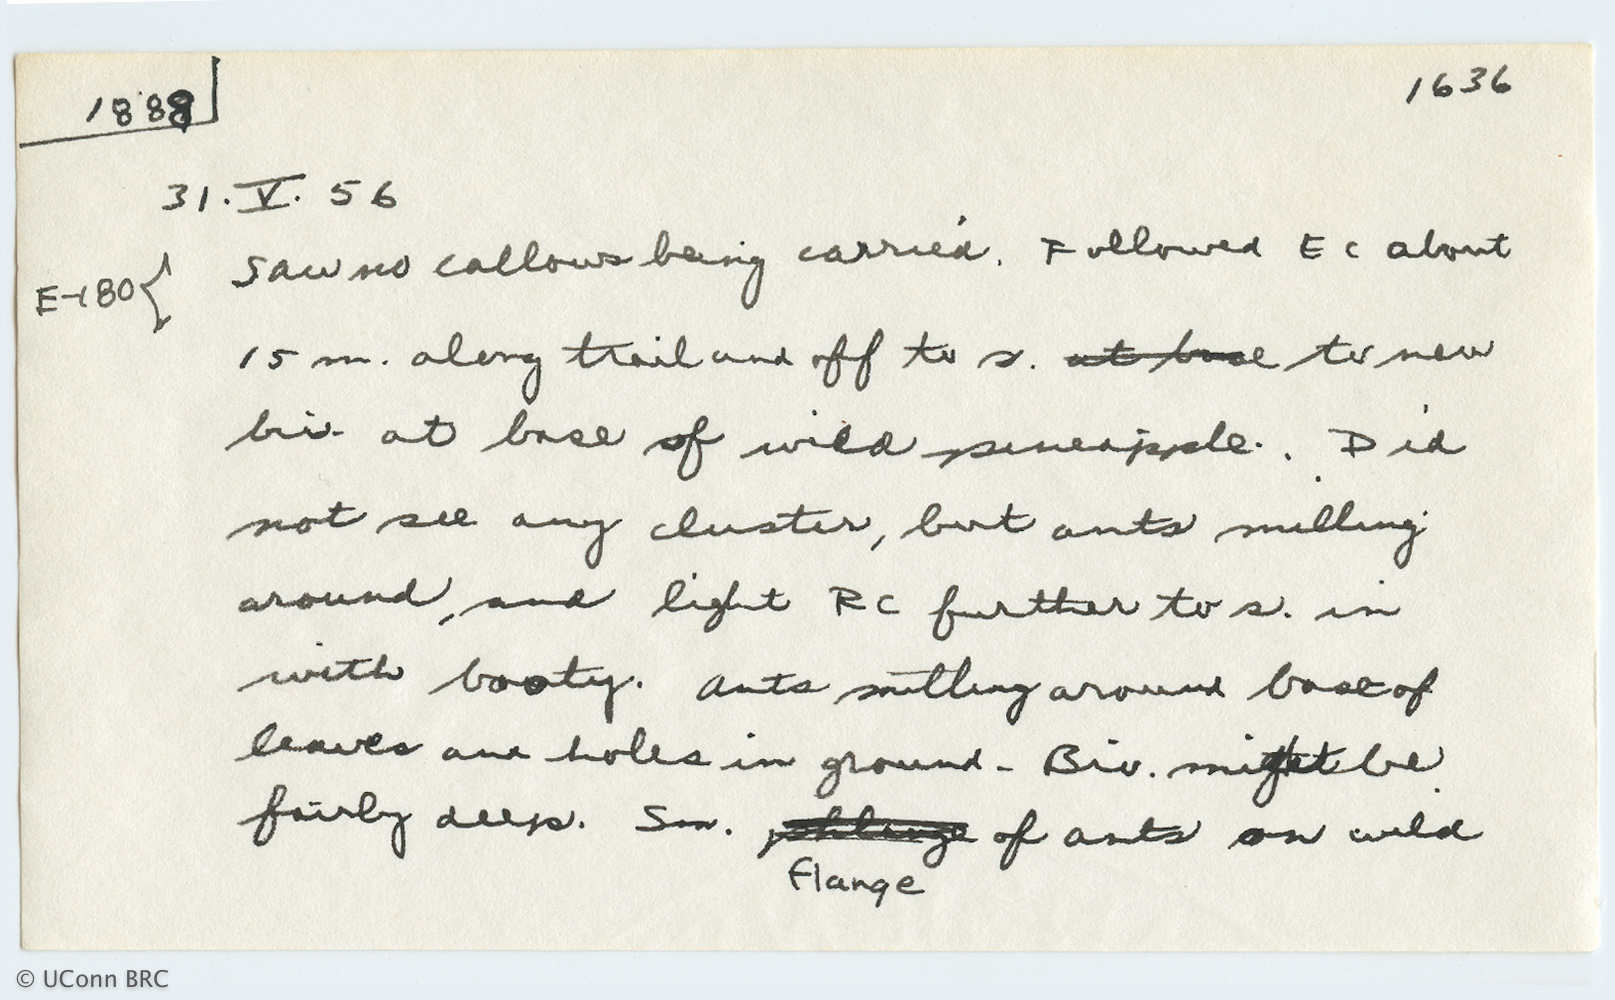 1888
1636
31.V.56
E-180 { Saw no callows being carried. Followed EC about
15 m. along trail and off to s. at base to new
biv. at base of wild pineapple. Did
not see any cluster, but ants milling
around, and light RC further to s. in
with booty. Ants milling around base of
leaves and holes in ground - Biv. might be
fairly deep. Sm. phlange of ants on wild
flange
© UConn BRC